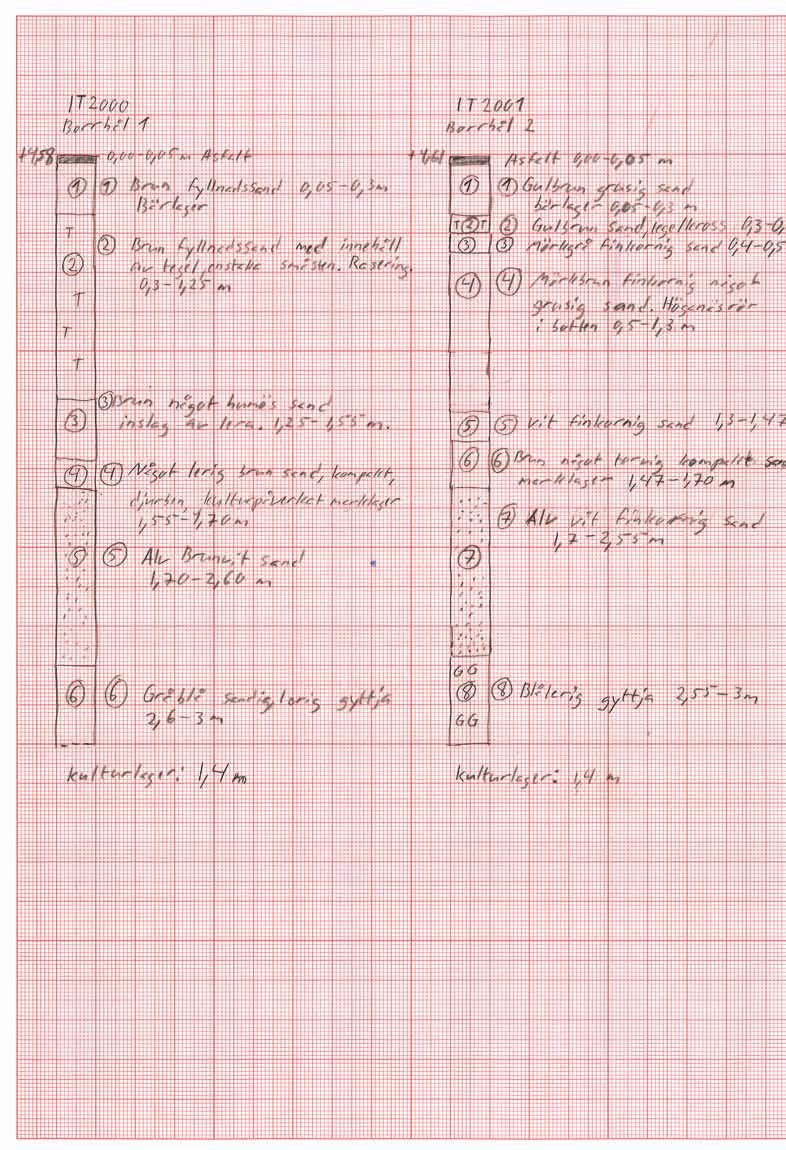 IT2000
Borrhål 1
+4,58
0,00-0,05 m Asfalt
① ① Brun fyllnadssand 0,05-0,3m
Bärlager
T
② Brun fyllnadssand med innehåll
②
av tegel, enstaka småsten. Rasering.
0,3-1,25 m
T
T
T
③ Brun något humös sand
③
inslag av lera. 1,25-1,55m.
④ ④ Något lerig brun sand, kompakt,
djurben, kulturpåverkat marklager
1,55-1,70m
⑤ ⑤ Alv Brunvit sand
1,70-2,60 m
⑥ ⑥ Gråblå sandig, lerig gyttja
2,6-3m
kulturlager: 1,4 m
IT2001
Borrhål 2
+4,61
Asfalt 0,00-0,05 m
① ① Gulbrun grusig sand
bärlager 0,05-0,3 m
T ② T ② Gulbrun sand, tegelkross 0,3-0,
③ ③ Mörkgrå finkornig sand 0,4-0,5
④ ④ Mörkbrun finkornig något
grusig sand. Höganäsrör
i botten 0,5-1,3m
⑤ ⑤ Vit finkornig sand 1,3-1,47
⑥ ⑥ Brun något kompakt
marklager 1,47-1,70 m
⑦ Alv vit finkornig sand
1,7-2,55m
⑦
GG
⑧ ⑧ Blålerig gyttja 2,55-3m
GG
kulturlager: 1,4 m